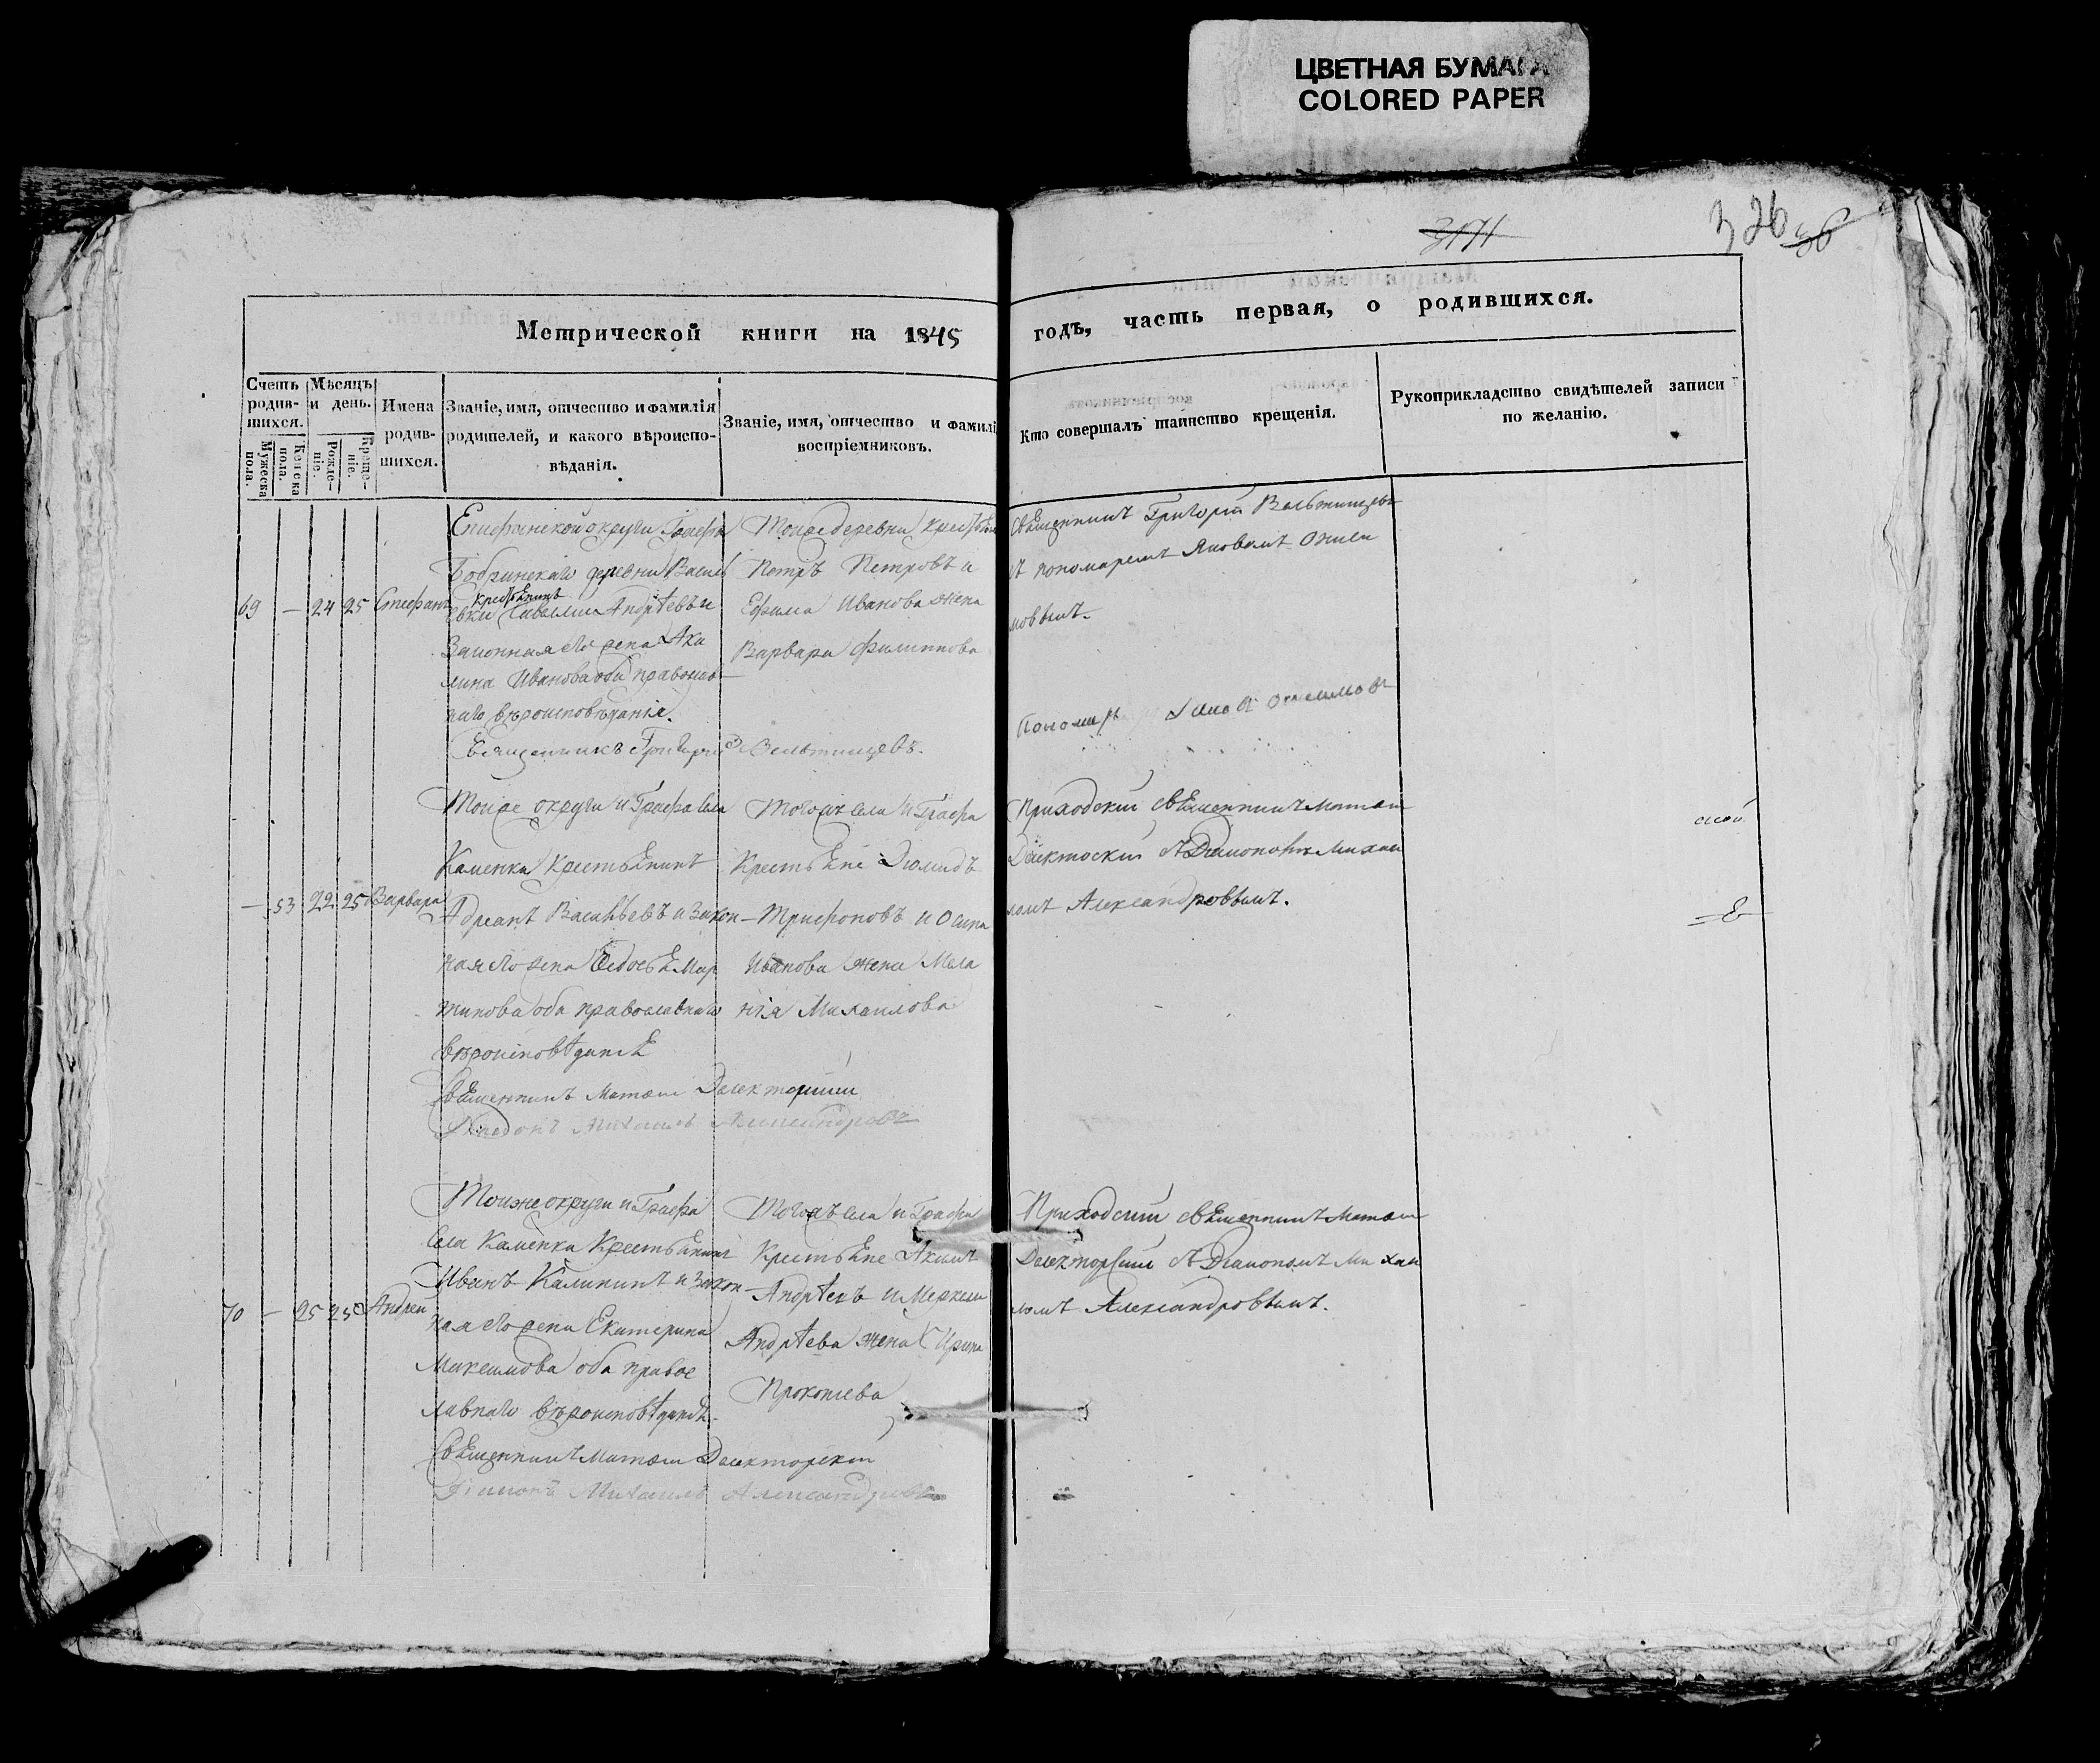 ЦВЕТНАЯ БУМАГА
COLORED PAPER
3171
326
36
Метрической книги на 1845
годъ, часть первая, о родившихся.
Счетъ родив-шихся.
Мужеска пола.
Женска пола.
Мѣсяцъ и день.
Рожде-ніе.
Креще-ніе.
Имена родив-шихся.
Званіе, имя, отчество и фамилія родителей, и какого вѣроиспо-вѣданія.
Званіе, имя, отчество и фамилі воспріемниковъ.
Кто совершалъ таинство крещенія.
Рукоприкладство свидѣтелей записи по желанію.
69 — 24 25 Стефанъ
Епифанской округи Графа
Бобринскаго деревни Васил
крестьянинъ
евки Андрѣевъ и
Законная его жена Аки
лина Иванова оба православ
наго вѣроисповѣданія.
Священникъ Григорій
Тойже деревни
Петръ Петровъ и
Ефима Иванова жена
Варвара Филиппова
Священникъ Григорій
съ пономаремъ Яковомъ Ониси
мовымъ.
Пономарь
— 53 22 25 Варвара
Тойже округи и Графа села
Каменки Крестьянинъ
Адреанъ Васильевъ и Закон
ная его жена Федосья Мар
тинова оба православнаго
вѣроисповѣдания
Священникъ Матвей Делекторский
Диаконъ Михаилъ Александровъ
Тогожъ села и Графа
Крестьяне Диомидъ
Трифоновъ и Осипа
Иванова жена Мела
ния Михаилова
Приходский священникъ Матвей
съ Диакономъ Михаи
ломъ Александровымъ.
70 — 25 25 Андрей
Тойже округи и Графа
села Каменки Крестьянинъ
Иванъ Калининъ и закон
ная его жена Екатерина
Максимова оба правос
лавнаго вѣроисповѣдания.
Священникъ Матвей Делекторский
Диаконъ Михаилъ Александровъ
Тогожъ села и Графа
Крестьяне Акимъ
Андрѣевъ и
Андрѣева жена Ирина
Прокопиева
Приходский священникъ Матвей
Делекторский съ Диакономъ Михаи
ломъ Александровымъ.